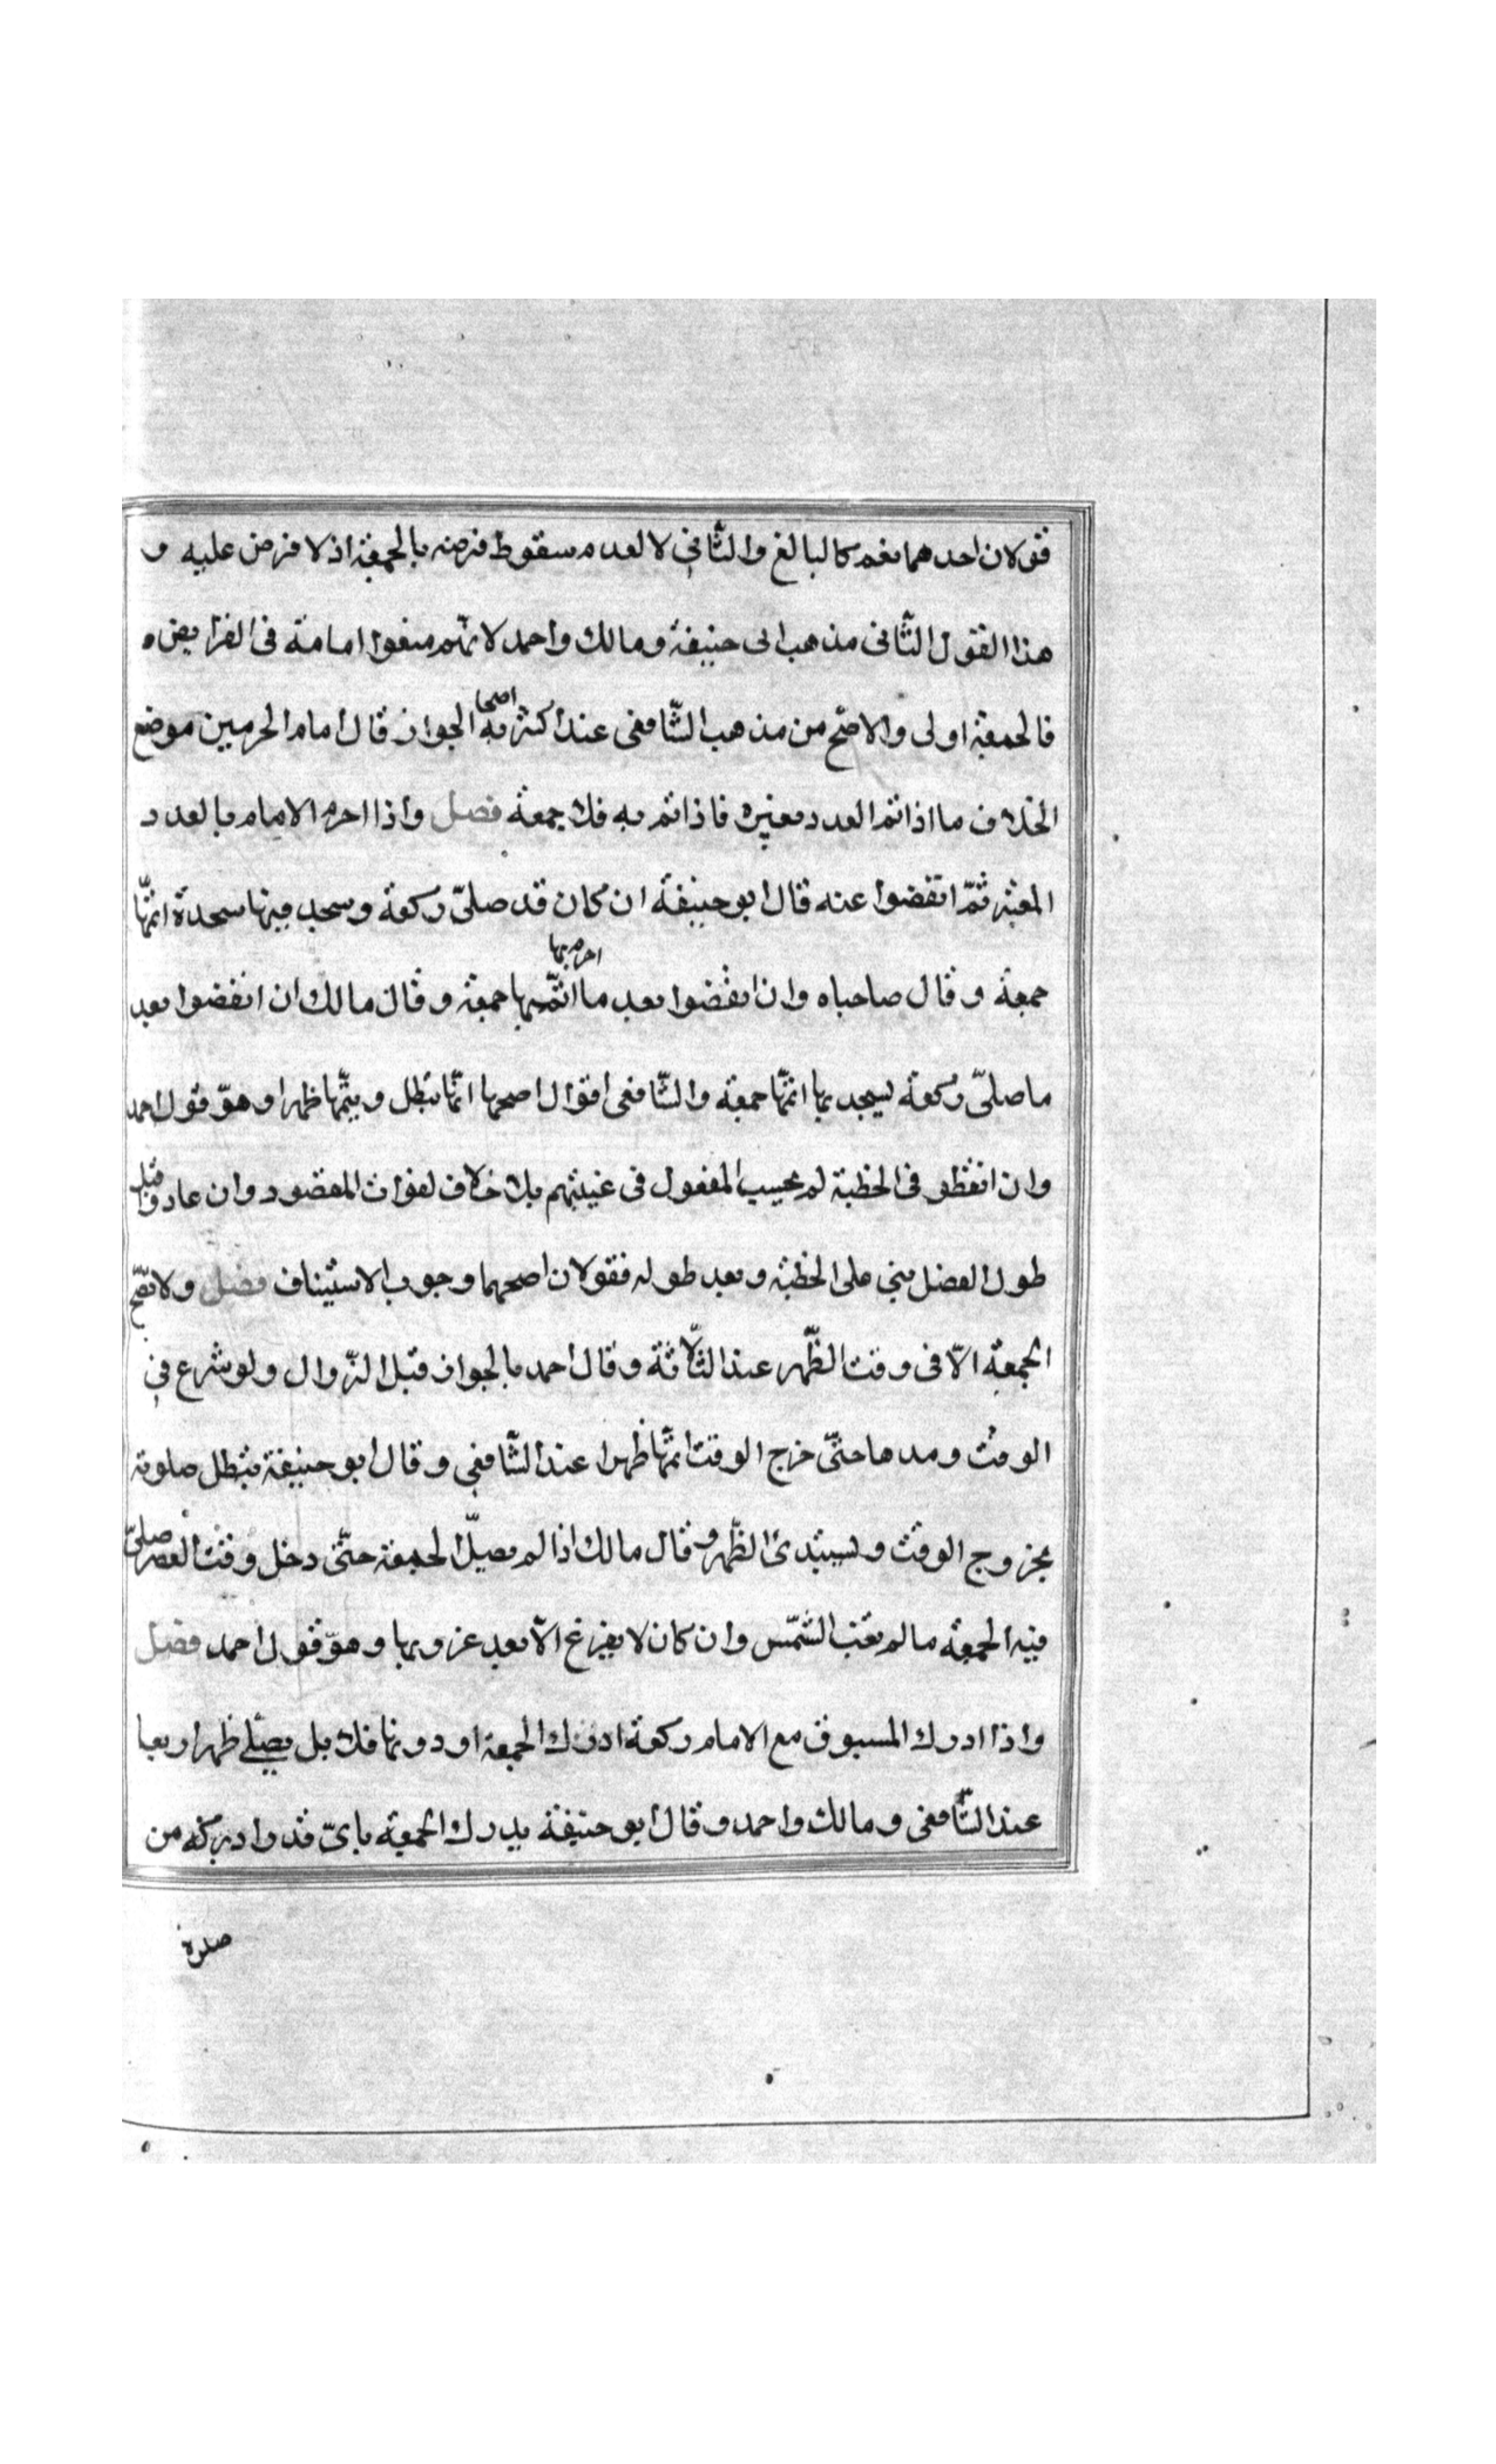 قولان احدهما نعم كالبالغ والثّاني لا لعدم سقوط فرضه بالجمعة اذ لا فرض عليه و
هذا القول الثّاني مذهب ابى حنيفة ومالك واحمد لانهّم منعوا امامة فى الفرايض ه
فالجمعة اولى والاصّح من مذهب الشّافعى عند اكثر اصحابه الجواز قال امام الحرمين موضع
الخلاف ما اذا تم العدد بغيره فاذا تم به فلا جمعة فصل واذا احرم الامام بالعدد
المعتبر ثمّ انفضوا عنه قال ابو حنيفة ان كان قد صلىّ ركعة وسجد فيها سجدة اتمّها
جمعة وقال صاحباه وان انفضوا بعد ما احرم بها اتمّها جمعة وقال مالك ان انفضوا بعد
ما صلىّ ركعة بسجديها اتمّها جمعة والشّافعى اقوال اصحها انهّا تبطل ويتمّها ظهرا وهوّ قول احمد
وان انفظو فى الخطبة لم يحسب المفعول فى غيبتهم بلا خلاف لفوات المقصود وان عادوا قبل
طول الفصل بنى على الخطبة وبعد طوله فقولان اصحهما وجوب الاستيناف فصل ولا تصّح
الجمعة الاّ فى وقت الظّهر عند الثلّاثة وقال احمد بالجواز قبل الزّوال ولو شرع في
الوقت ومدها حتىّ خرج الوقت اتمّها ظهرا عند الشّافعي وقال ابو حنيفة تبطل صلوته
بخروج الوقت ويبتدئ الظّهر وقال مالك اذا لم يصلّ الجمعة حتىّ دخل وقت العصر صلىّ
فيه الجمعة ما لم تغب الشّمس وان كان لا يفرغ الاّ بعد غروبها وهوّ قول احمد فصل
واذا ادرك المسبوق مع الامام ركعة ادرك الجمعة او دونها فلا بل يصلّي ظهرا اربعا
عند الشّافعى ومالك واحمد وقال ابو حنيفة يدرك الجمعة باىّ قدر ادركه من
صلوة